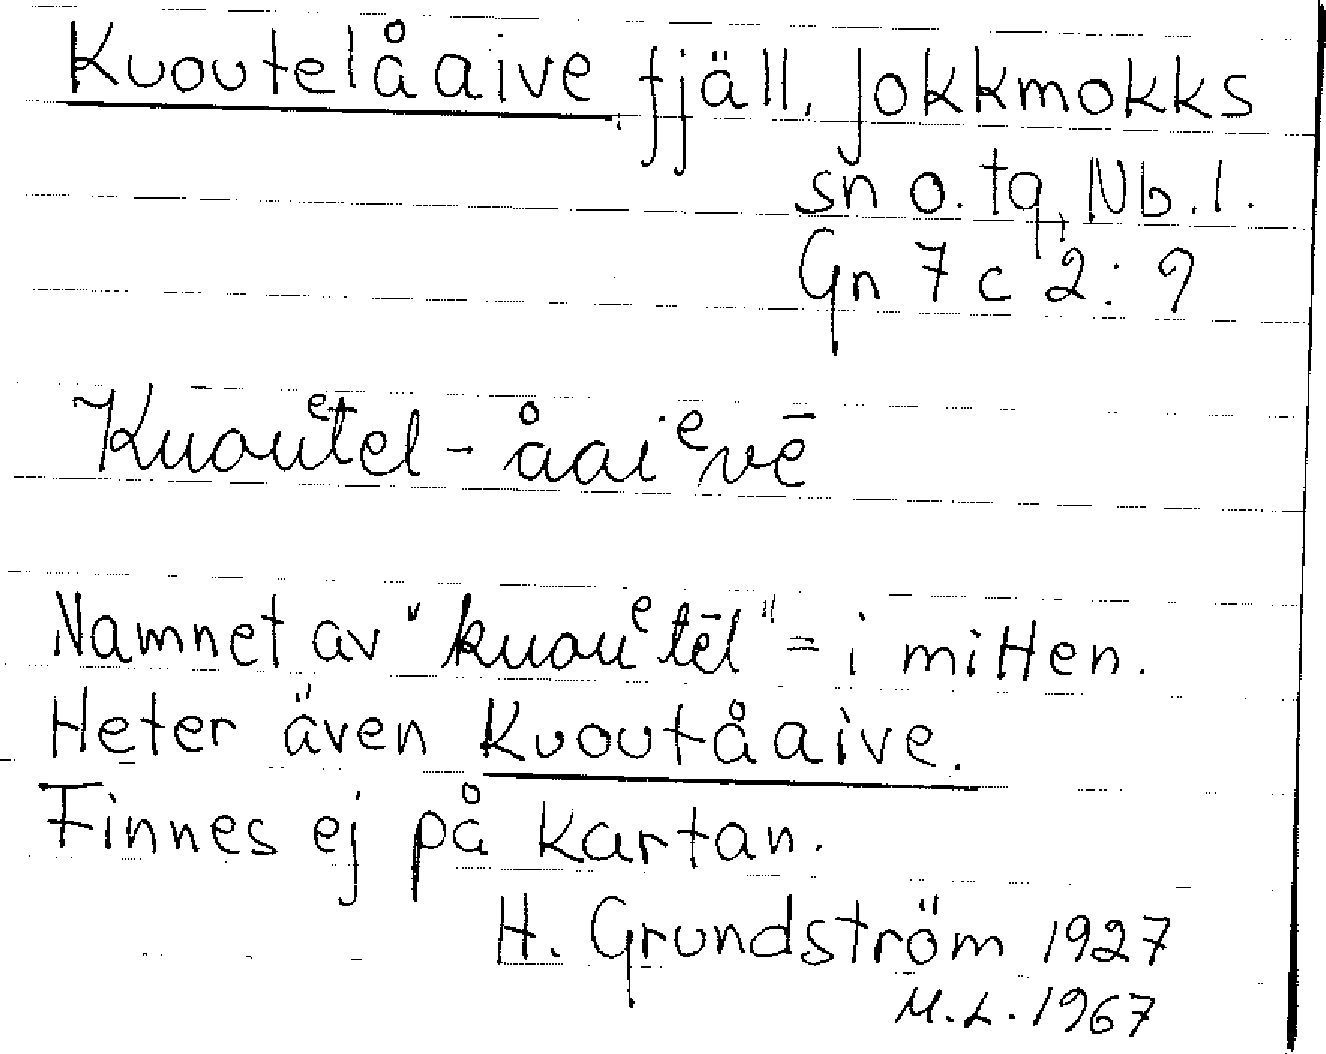 Kuoutelåaive fjäll, Jokkmokks
sn o. tg, Nb. l.
Gn 7 c 2: 9
Kuouᵉtel - åaiᵉvē
Namnet av "kuouᵉtēl" = i mitten.
Heter även Kuoutåaive.
Finnes ej på kartan.
H. Grundström 1927
M.L. 1967